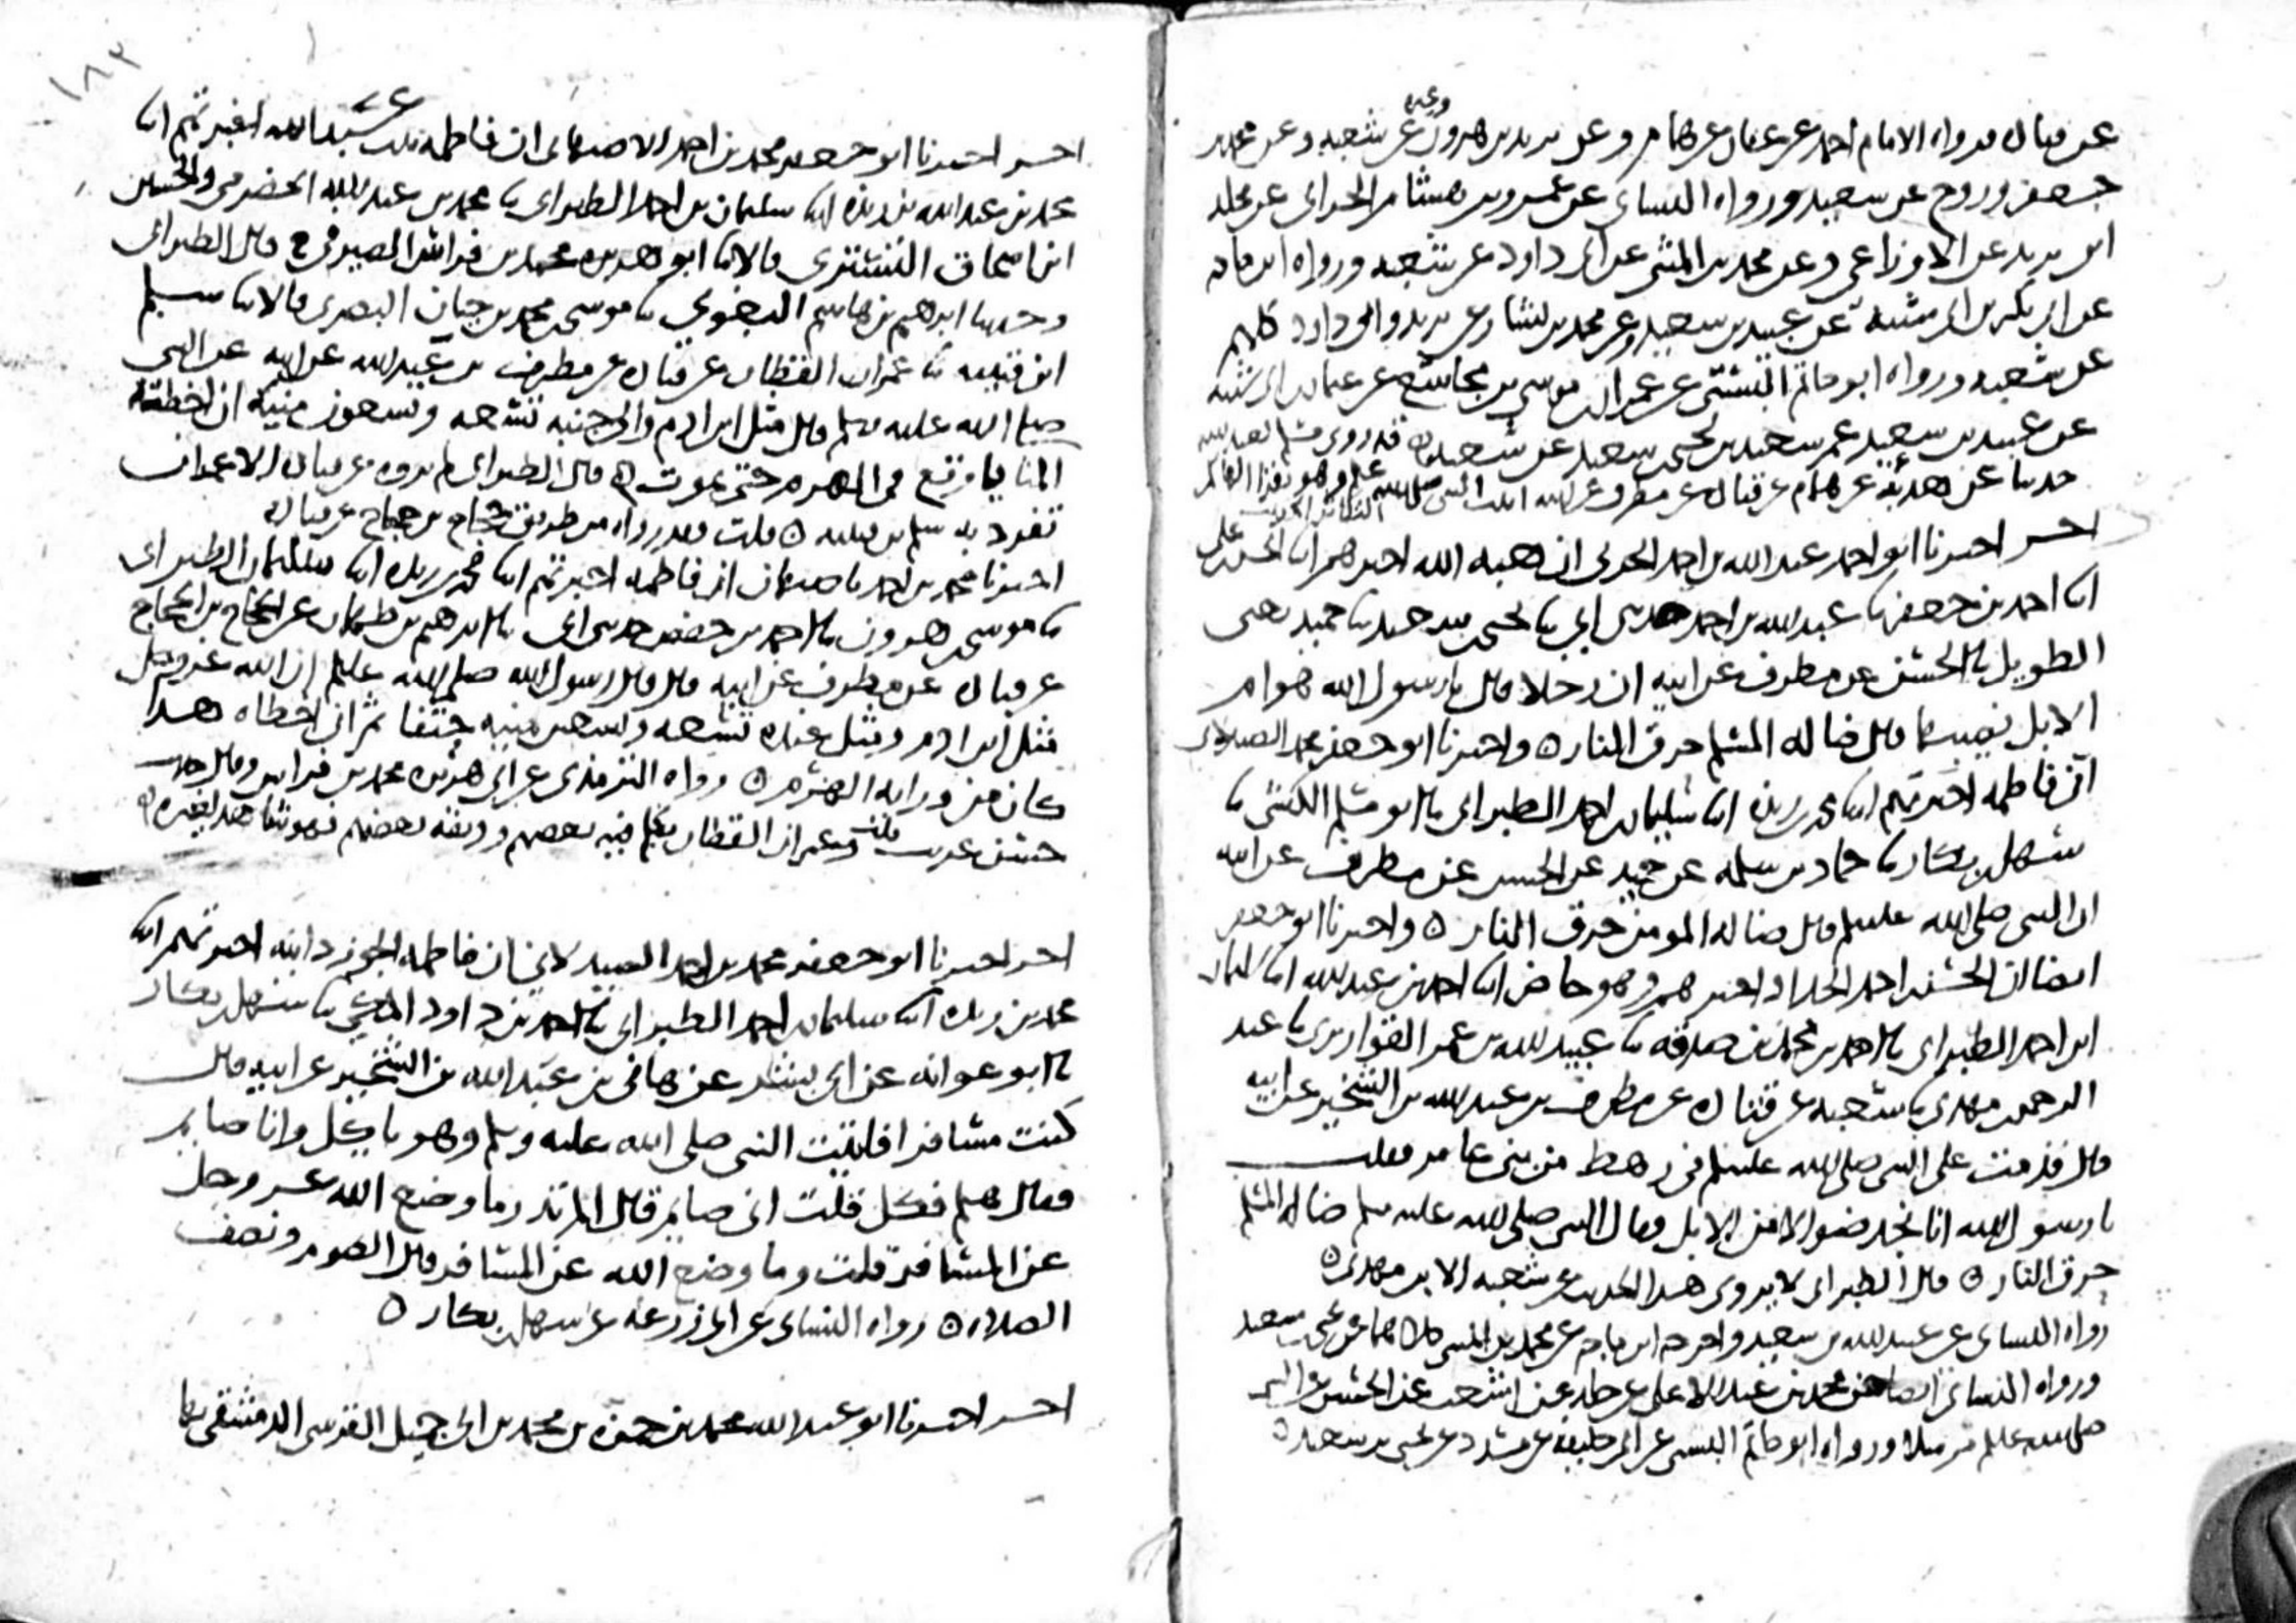 عن قتادة ورواه الامام احمد عن عفان عن همام وعن يزيد بن هرون عن شعبه وعن محمد بن
جعفر وروح عن سعيد ورواه النسائي عن عمرو بن هشام الحراني عن مخلد
ابن يزيد عن الاوزاعي وعن محمد بن المثنى عن ابي داود عن شعبه ورواه ابن ماجه
عن ابي بكر بن ابي شيبة عن عبيد بن سعيد وعن محمد بن بشار عن يزيد وابي داود كلهم
عن شعبه ورواه ابو حاتم البستي عن عمران بن موسى بن مجاشع عن عثمان بن ابي شيبه
عن عبيد بن سعيد عم سعيد بن يحيى بن سعيد عن شعبه قد روى مسلم
حديثا عن هدبة عن همام عن قتادة عن مطرف عن ابيه اتيت النبي صلى الله عليه وهو يقرا الهاكم التكاثر
اخر اخبرنا ابو احمد عبد الله بن احمد الحربي ان هبه الله اخبرهم ابنا الحسن بن علي
ابنا احمد بن جعفر ثنا عبد الله بن احمد حدثني ابي ثنا يحيى بن سعيد ثنا حميد يعني
الطويل ثنا الحسن عن مطرف عن ابيه ان رجلا قال يا رسول الله هوام
الابل نصيبها قال ضالة المسلم حرق النار ٥ واخبرنا ابو جعفر محمد الصيدلاني
ان فاطمه اخبرتهم ابنا محمد بن ريذه ابنا سليمان بن احمد الطبراني ثنا ابو مسلم الكشي ثنا
سهل بن بكار ثنا حماد بن سلمه عن حميد عن الحسن عن مطرف عن ابيه
ان النبي صلى الله عليه وسلم قال ضالة المومن حرق النار ٥ واخبرنا ابو جعفر
ايضا ان الحسن بن احمد الحداد اخبرهم وهو حاضر ابنا احمد بن عبد الله ابنا سليمان
ابن احمد الطبراني ثنا احمد بن محمد بن صدقه ثنا عبيد الله بن عمر القواريري ثنا عبد
الرحمن بن مهدي ثنا شعبه عن قتادة عن مطرف بن عبد الله بن الشخير عن ابيه
قال قدمت على النبي صلى الله عليه وسلم في رهط من بني عامر فقلت
يا رسول الله انا نجد ضوالا من الابل فقال النبي صلى الله عليه وسلم ضالة المسلم
حرق النار ٥ قال الطبراني لا يروى هذا الحديث عن شعبه الا ابن مهدي ٥
رواه النسائي عن عبيد الله بن سعيد واخرجه ابن ماجه عن محمد بن المثنى كلاهما عن يحيى بن سعيد
ورواه النسائي ايضا عن محمد بن عبد الاعلى عن خالد عن اشعث عن الحسن عن النبي
صلى الله عليه وسلم مرسلا ورواه ابو حاتم البستي عن ابي خليفه عن مسدد عن يحيى بن سعيد ٥
١٨٣
اخر اخبرنا ابو جعفر محمد بن احمد الاصبهاني ان فاطمه بنت عبد الله اخبرتهم ابنا
محمد بن عبد الله بن ريذه ابنا سليمان بن احمد الطبراني ثنا محمد بن عبد الله الحضرمي والحسين
ابن اسحاق التستري قالا ثنا ابو هريره محمد بن فراس الصيرفي ح قال الطبراني
وحدثنا ابرهيم بن هاشم البغوي ثنا موسى بن محمد بن حيان البصري قالا ثنا سلم
ابن قتيبه ثنا عمران القطان عن قتادة عن مطرف بن عبد الله عن ابيه عن النبي
صلى الله عليه وسلم قال مثل ابن ادم والى جنبه تسعه وتسعون منية ان اخطئته
المنايا وقع في الهرم حتى يموت ٥ قال الطبراني لم يروه عن قتادة الا عمران
تفرد به سلم بن قتيبه ٥ قلت وقد رواه من طريق حجاج بن حجاج عن قتادة
اخبرنا محمد بن احمد باصبهان ان فاطمه اخبرتهم ابنا محمد بن ريذه ابنا سليمان الطبراني
ثنا موسى بن هرون ثنا احمد بن حفص حدثني ابي ثنا ابرهيم بن طهمان عن الحجاج بن الحجاج
عن قتادة عن مطرف عن ابيه قال قال رسول الله صلى الله عليه وسلم ان الله عز وجل
مثل ابن ادم ومثل عنده تسعه وتسعين منيه حتفا ثم ان اخطاه هذا
كان من ورايه الهرم ٥ رواه الترمذي عن ابي هريره محمد بن فراس وقال حديث
حسن غريب قلت وعمران القطان تكلم فيه بعضهم ووثقه بعضهم فهو شاهد لغيره ٥
اخر اخبرنا ابو جعفر محمد بن احمد الصيدلاني ان فاطمه الجوزدانيه اخبرتهم ابنا
محمد بن ريذه ابنا سليمان بن احمد الطبراني ثنا احمد بن داود المكي ثنا سهل بن بكار
ثنا ابو عوانه عن ابي بشر عن هانئ بن عبد الله بن الشخير عن ابيه قال
كنت مسافرا فاتيت النبي صلى الله عليه وسلم وهو ياكل وانا صايم
فقال هلم فكل قلت اني صايم قال الم تدر ما وضع الله عز وجل
عن المسافر قلت وما وضع الله عن المسافر قال الصوم ونصف
الصلاة ٥ رواه النسائي عن ابي زرعه عن سهل بن بكار ٥
اخر اخبرنا ابو عبد الله محمد بن حمزه بن محمد بن ابي جميل القرشي الدمشقي بها